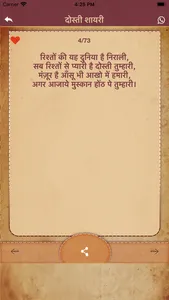 4:39 PM
दोस्ती शायरी
4/73
रिश्तों की यह दुनिया है निराली,
सब रिश्तों से प्यारी है दोस्ती तुम्हारी,
मंज़ूर है आँसू भी आखो में हमारी,
अगर आजाये मुस्कान होंठ पे तुम्हारी।